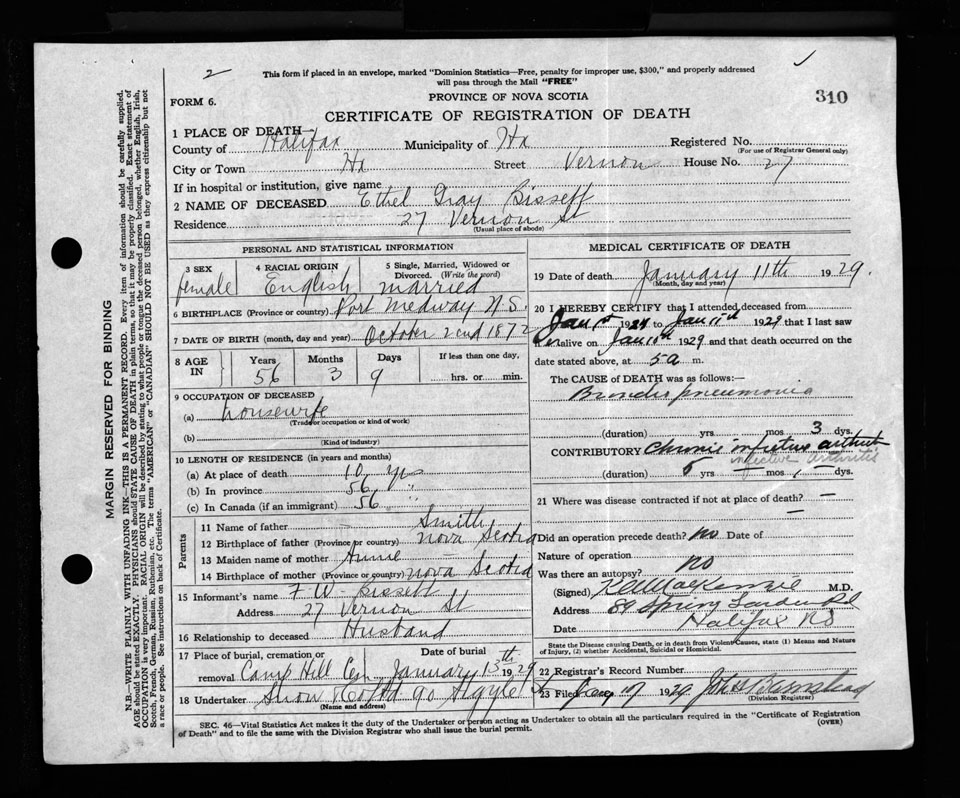 2
This form if placed in an envelope, marked "Dominion Statistics—Free, penalty for improper use, $300," and properly addressed
will pass through the Mail "FREE"
FORM 6.
PROVINCE OF NOVA SCOTIA
310
CERTIFICATE OF REGISTRATION OF DEATH
1 PLACE OF DEATH—
County of Halifax Municipality of Hx Registered No.
(For use of Registrar General only)
City or Town Hx Street Vernon House No. 27
If in hospital or institution, give name
2 NAME OF DECEASED Ethel Gray Bissett
Residence 27 Vernon St
(Usual place of abode)
PERSONAL AND STATISTICAL INFORMATION
3 SEX female
4 RACIAL ORIGIN English
5 Single, Married, Widowed or
Divorced. (Write the word)
married
6 BIRTHPLACE (Province or country) Port Medway N.S.
7 DATE OF BIRTH (month, day and year) October 2end 1872
8 AGE IN
Years Months Days If less than one day,
56 3 9 hrs. or min.
9 OCCUPATION OF DECEASED
(a) housewife
(Trade, occupation or kind of work)
(b)
(Kind of industry)
10 LENGTH OF RESIDENCE (in years and months)
(a) At place of death 10 yrs
(b) In province 56 "
(c) In Canada (if an immigrant) 56 "
Parents
11 Name of father Smith
12 Birthplace of father (Province or country) Nova Scotia
13 Maiden name of mother Annie
14 Birthplace of mother (Province or country) Nova Scotia
15 Informant's name F. W. Bissett
Address 27 Vernon St
16 Relationship to deceased Husband
17 Place of burial, cremation or Date of burial
removal Camp Hill Cem January 13th 1929
18 Undertaker Snow & Co Ltd 90 Argyle St
(Name and address)
MEDICAL CERTIFICATE OF DEATH
19 Date of death January 11th 1929.
(Month, day and year)
20 I HEREBY CERTIFY that I attended deceased from
Jan 1st 1929 to Jan 11th 1929 that I last saw
her alive on Jan 10th 1929 and that death occurred on the
date stated above, at 5 a m.
The CAUSE OF DEATH was as follows:—
Broncho pneumonia
(duration) yrs mos 3 dys.
CONTRIBUTORY Chronic infective arthritis
infective arthritis
(duration) 5 yrs — mos. — dys.
21 Where was disease contracted if not at place of death? —
—
Did an operation precede death? no Date of
Nature of operation
Was there an autopsy? no
(Signed) K A MacKenzie M.D.
Address 89 Spring Garden Rd
Date Halifax NS
State the Disease causing Death, or in death from Violent Causes, state (1) Means and Nature
of Injury, (2) whether Accidental, Suicidal or Homicidal.
22 Registrar's Record Number
23 Filed Jan 17 1929 John Barnstead
(Division Registrar)
SEC. 46—Vital Statistics Act makes it the duty of the Undertaker or person acting as Undertaker to obtain all the particulars required in the "Certificate of Registration
of Death" and to file the same with the Division Registrar who shall issue the burial permit.
(OVER)
MARGIN RESERVED FOR BINDING
N.B.—WRITE PLAINLY WITH UNFADING INK—THIS IS A PERMANENT RECORD. Every item of information should be carefully supplied.
AGE should be stated EXACTLY. PHYSICIANS should STATE CAUSE OF DEATH in plain terms, so that it may be properly classified. Exact statement of
OCCUPATION is very important. RACIAL ORIGIN will be described by stating to what people or tongue the deceased person belonged, whether English, Irish,
Scotch, French, German, Russian, Ruthenian, etc. The terms "AMERICAN" or "CANADIAN" SHOULD NOT BE USED as they express citizenship but not
a race or people. See instructions on back of Certificate.